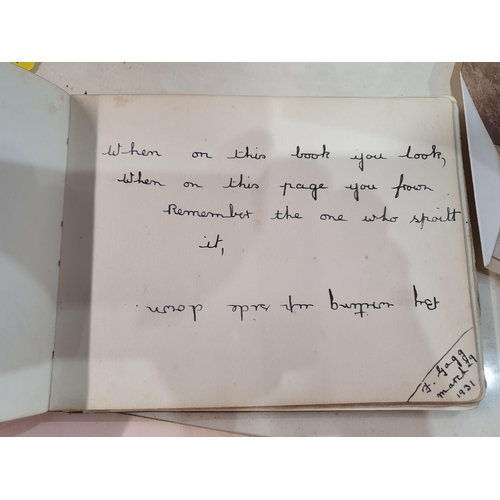 When on this book you look,
When on this page you frown
Remember the one who spoilt
it,
By writing up side down.
F. Gagg
March 29
1931